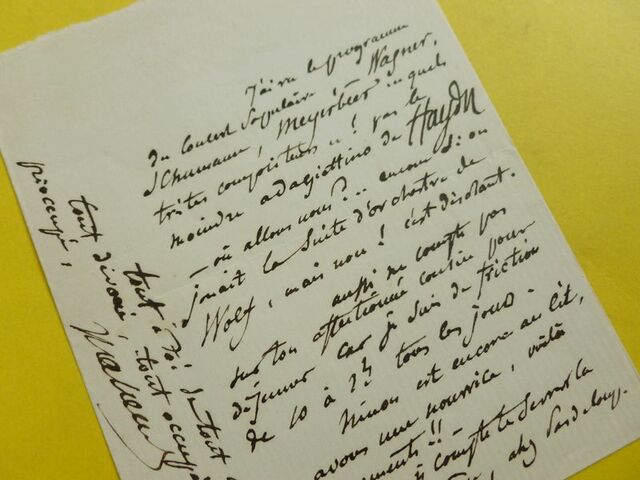 J'ai vu le programme
du Concert populaire ! Wagner,
Schumann, Meyerbeer quels
tristes compositeurs ! pas le
moindre adagiettino de Haydn
où allons nous ?.. encore si on
jouait la Suite d'orchestre de
Wolf, mais non ! c'est désolant.
aussi ne compte pas
sur ton affectionné cousin pour
déjeuner car je suis de friction
de 10 à 2h tous les jours.
Ninon est encore au lit,
avons une nourrice, voilà
!!
compte te serrer la
, chez Pasdeloup.
tout à toi de tout
tout occupé
tout dévoué,
préoccupé,